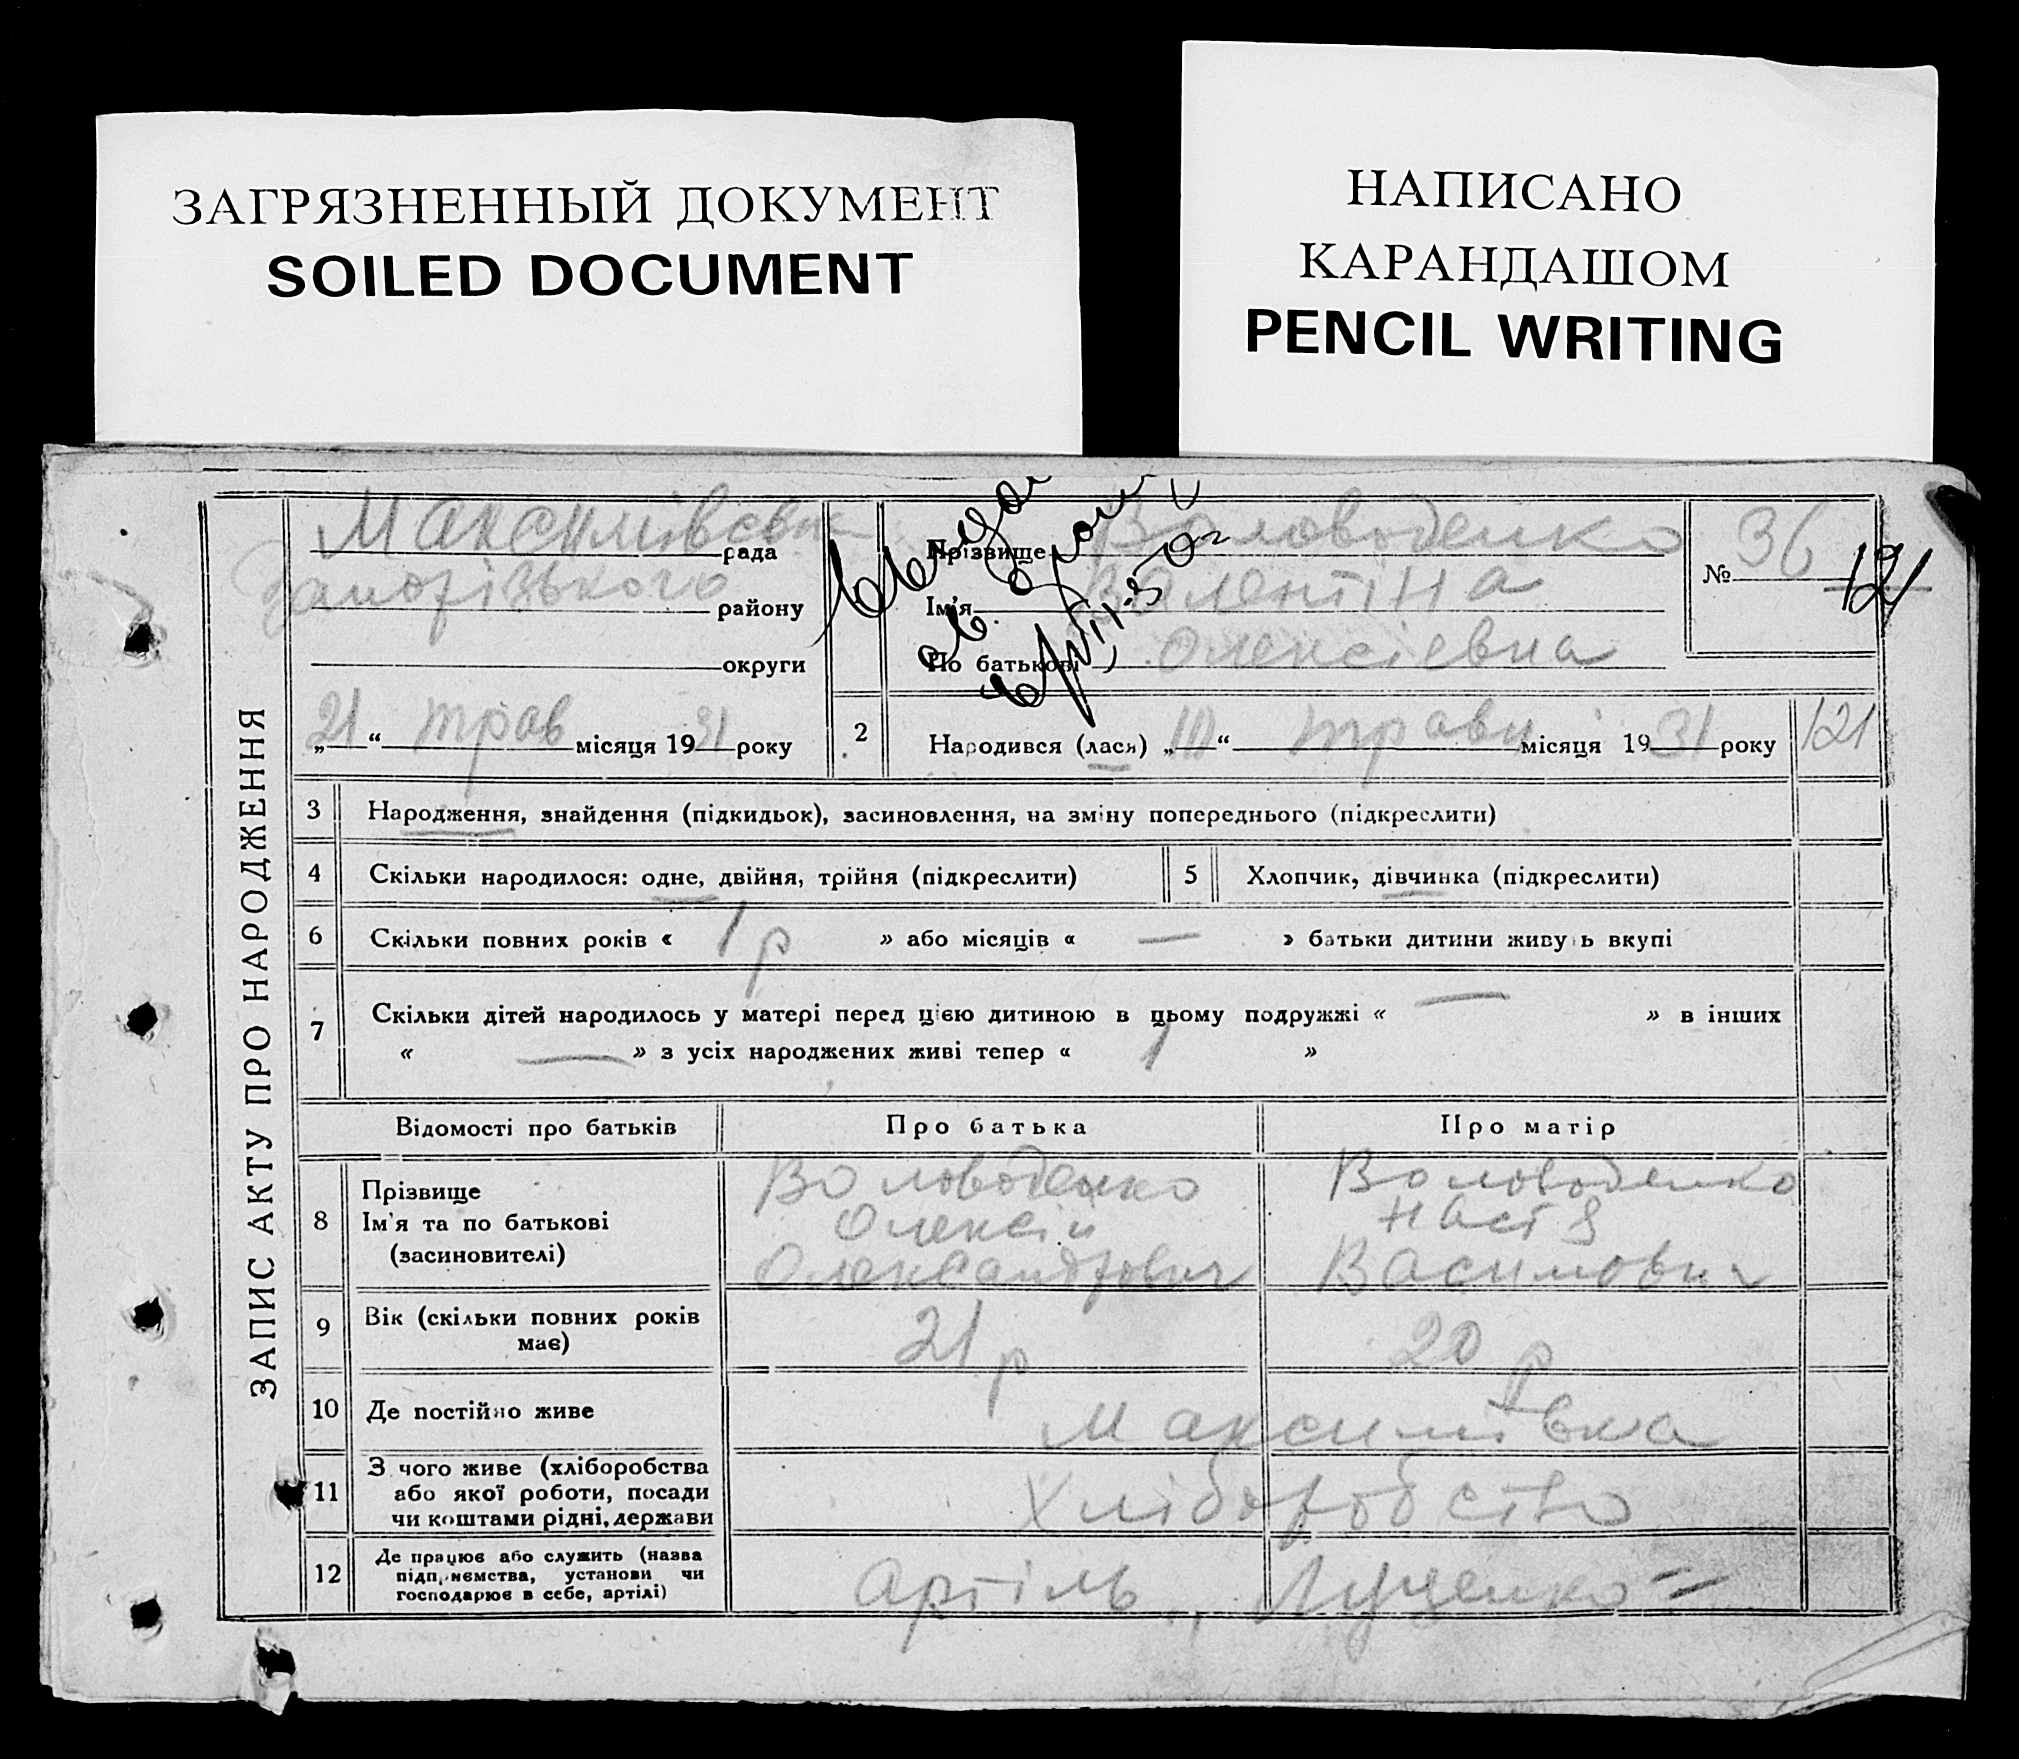 ЗАГРЯЗНЕННЫЙ ДОКУМЕНТ
SOILED DOCUMENT
НАПИСАНО
КАРАНДАШОМ
PENCIL WRITING
ЗАПИС АКТУ ПРО НАРОДЖЕННЯ
Максимівська рада
Запорізького району
округи
„21“ трав місяця 1931 року
Прізвище Воловоденко
Ім'я Валентіна
По батькові Олексієвна
№ 36
121
2 Народився (лася) „ “ травн місяця 1931 року 121
3 Народження, знайдення (підкидьок), засиновлення, на зміну попереднього (підкреслити)
4 Скільки народилося: одне, двійня, трійня (підкреслити) 5 Хлопчик, дівчинка (підкреслити)
6 Скільки повних років « 1 р » або місяців « — » батьки дитини живуть вкупі
7 Скільки дітей народилось у матері перед цією дитиною в цьому подружжі « — » в інших
« — » з усіх народжених живі тепер « 1 »
Відомості про батьків Про батька Про матір
8 Прізвище Воловоденко Воловоденко
Ім'я та по батькові Олексій Настя
(засиновителі) Олександрович Василович
9 Вік (скільки повних років має) 21 р 20 р
10 Де постійно живе Максимівка
11 З чого живе (хліборобства або якої роботи, посади чи коштами рідні, держави Хліборобство
12 Де працює або служить (назва підприємства, установи чи господарює в себе, артілі) Артіль „Луценко"